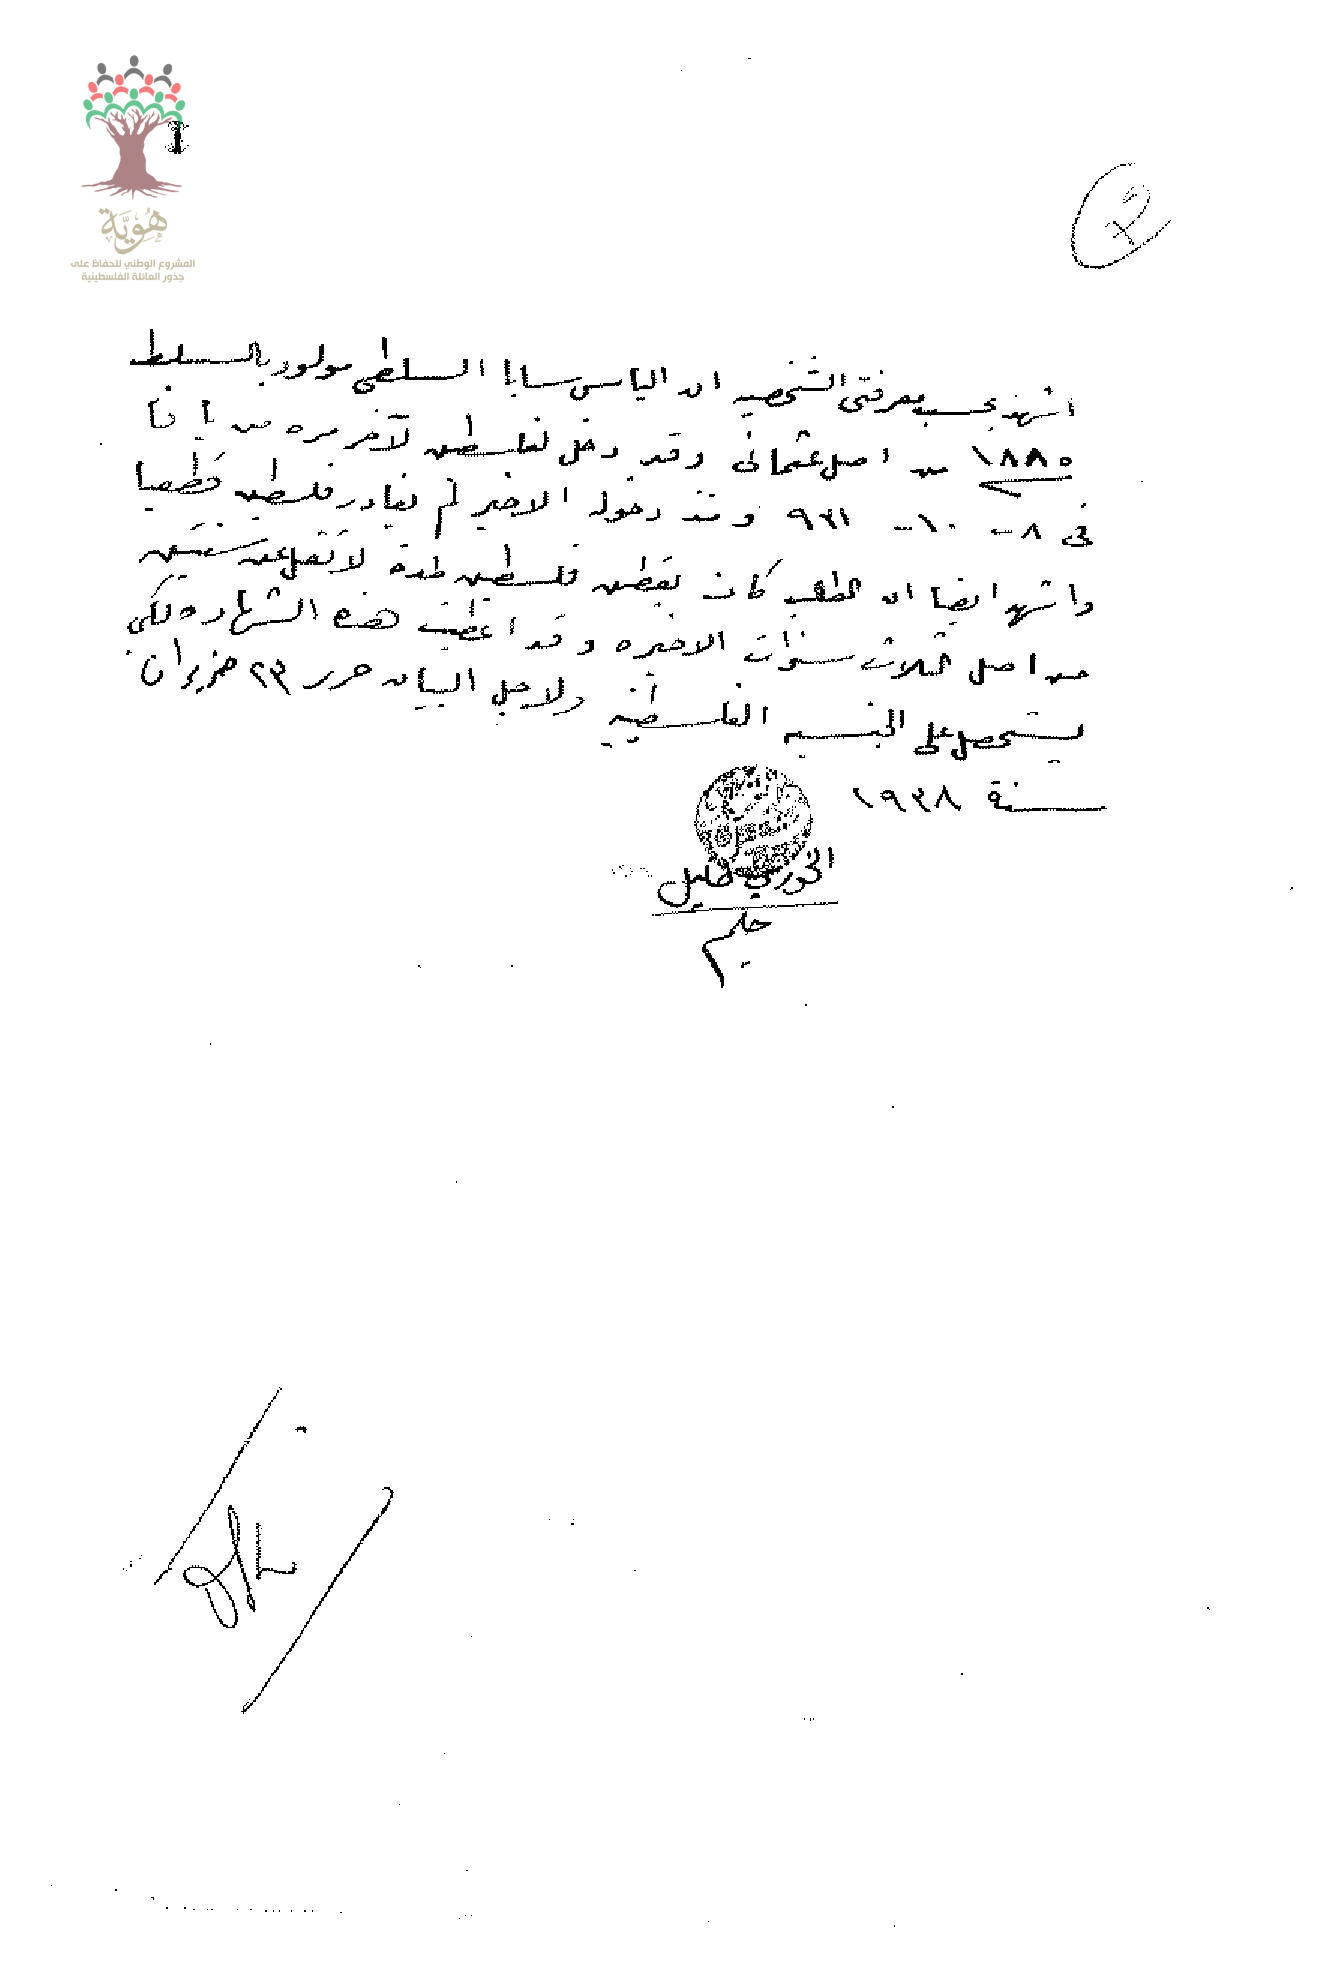 هُوِيَّة
المشروع الوطني للحفاظ على
جذور العائلة الفلسطينية
اشهد بحسب معرفتي الشخصيه ان الياس سابا السلطي مولود بالسلط
١٨٨٥ من اصل عثماني وقد دخل لفلسطين لآخر مره من يافا
في ٨ - ١٠ - ٩٣١ ومنذ دخوله الاخير لم يغادر فلسطين قطعيا
واشهد ايضا ان الطالب كان يقطن فلسطين لمدة لا تقل عن سنتين
من اصل الثلاث سنوات الاخيره وقد اعطيت هذه الشهاده لكي
يستحصل على الجنسيه الفلسطينيه ولاجل البيان حرر ٢٣ حزيران
سنة ١٩٣٨
الخوري خليل
حكيم